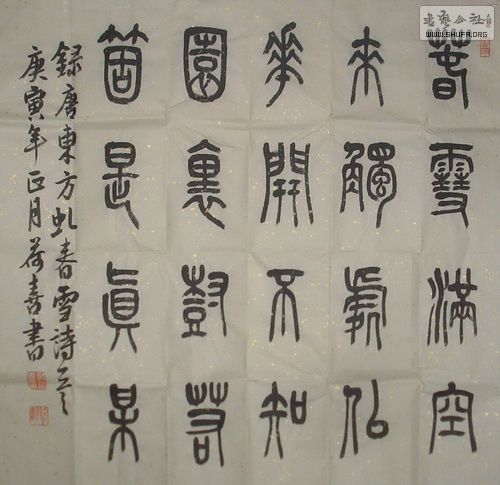 書藝公社
WWW.SHUFA.ORG
春雪滿空
來觸處佀
華開不知
園裏尌若
箇是眞某
錄唐東方虬春雪詩一首
庚寅年正月荷喜書